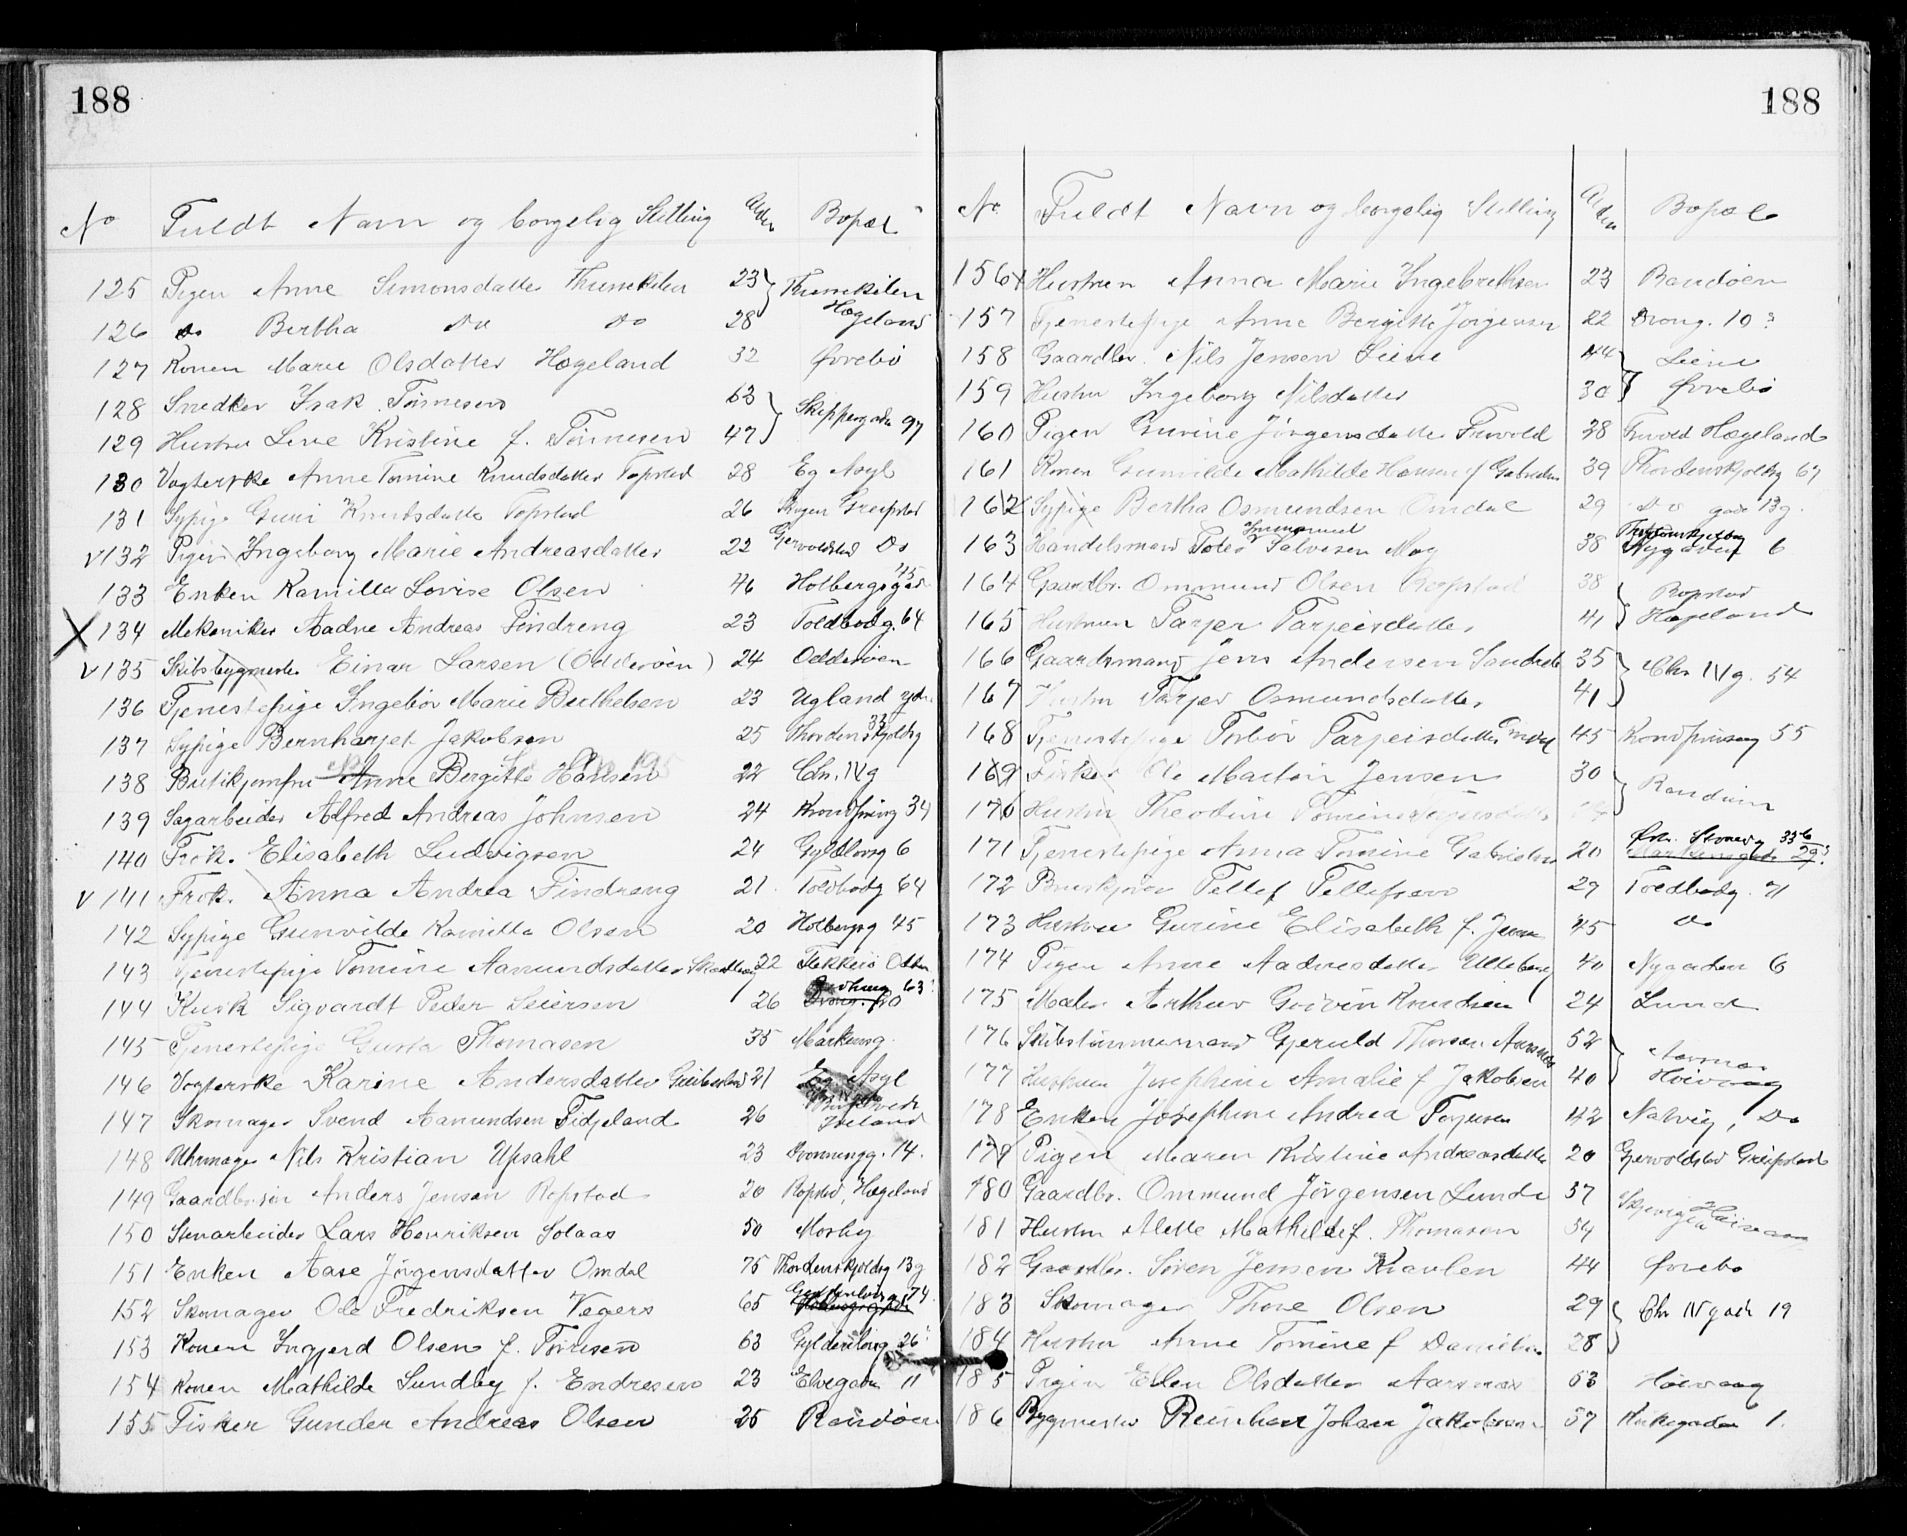 188
No Fuldt Navn og borgelig Stilling Alder Bopæl
125 Pigen Anne Simonsdatter 23
126 do Bertha Do Do 28 Hægeland
127 Konen Marie Olsdatter Hægeland 32 Øvrebö
128 Snedker Isak Tönnesen 63 Skippergaden 97
129 Hustru Lene Kristine f. Tönnesen 47
130 Vogterske Anne Tomine Knudsdatter Topstad 28 Eg Asyl
131 Sypige Guri Knudsdatter Topstad 26 Greipstad
V 132 Pigen Ingeborg Marie Andreasdatter 22 Gjervoldstad Do
133 Enken Kamilla Lovise Olsen 46 Holbergsgad 45
X 134 Mekaniker Aadne Andreas Findreng 23 Toldbodg. 64
V 135 Skibsbygmester Einar Larsen (Odderöen) 24 Odderöen
136 Tjenestepige Ingebör Marie Berthelsen 23 Ugland
137 Sypige Bernharjet Jakobsen 25 Thordenskjoldsg 33
138 Butikjomfru Anne Bergitte Hansen 22 Chr. IVg
139 Sagarbeider Alfred Andreas Johnsen 24 Kronprinsg 34
140 Frok. Elisabeth Ludvigsen 24 Gyldlövsg 6
V 141 Frok. Anna Andrea Findreng 21. Toldbodg 64
142 Sypige Gunvilde Kamilla Olsen 20 Holbergsg 45
143 Tjenestepige Tomine Aamundsdatter 22 Flekkerö
144 Kusk Sigvardt Peder Seiersen 26 63
145 Tjenestepige Gusta Thomasen 35 Markensg.
146 Vogterske Karine Andersdatter 21 Eg Asyl
147 Skomager Svend Aamundsen Fidjeland 26
148 Uhrmager Nils Kristian Upsahl 23 Dronningg. 14.
149 Gaardbr.sön Anders Jensen Ropstad 20 Ropstad, Hægeland
150 Stenarbeider Lars Henriksen Solaas 50 Mosby
151 Enken Aase Jörgensdatter Omdal 75 Thordenskjoldsg 13g
152 Skomager Ole Fredriksen Vegers 65 Gyldenlövsg 74.
153 Konen Ingjerd Olsen f. Törresen 63 Gyldenlövsg 26
154 Konen Mathilde Sundby f. Endresen 23 Elvegaden 11
155 Fisker Gunder Andreas Olsen 25 Randöen
188
No Fuldt Navn og borgelig Stilling Alder Bopæl
156 Hustruen Anna Marie Ingebrethsen 23 Randöen
157 Tjenestepige Anne Bergitte Jörgensen 22 Drong. 10
158 Gaardbr. Nils Jensen Liene 44 Liene
159 Hustru Ingeborg Nilsdatter 30 Øvrebö
160 Pigen Gurine Jörgensdatter 28 Hægeland
161 Konen Gunvilde Mathilde Hansen f Gabrielsen 39 Thordenskjoldsg 67
162 Sypige Bertha Osmundsen Omdal 29 Do gade 13g.
163 Handelsmand Salvesen Moy 38 6
164 Gaardbr. Ommund Olsen Ropstad 38 Ropstad
165 Hustruen Tarjer Tarjeisdatter 41 Hægeland
166 Gaardsmand Jens Andersen 35 Chr IV g. 54
167 Hustru Tarjer Osmundsdatter 41
168 Tjenestepige Torbör Tarjeisdatter 45 Kronprinseng 55
169 Fisker Ole Martin Jensen 30 Randöen
170 Hustru Theodine
171 Tjenestepige Anna Tomine Gabrielsen 20
172 Tellef Tellefsen 29 Toldbodg. 71
173 Hustru Gurine Elisabeth f. Jensen 45 Do
174 Pigen Anne Aadnesdatter 40 Nygaden 6
175 Maler Arthur Godvin Knudsen 24 Lund
176 Skibstömmermand Gjeruld Thorsen Aasnes 52
177 Hustruen Josephine Amalie f Jakobsen 40 Höivaag
178 Enken Josephine Andrea Terjesen 42 Natvig, Do
179 Pigen Maren Kristine Andreasdatter 20 Gjervoldstad Greipstad
180 Gaardbr. Ommund Jörgensen Lunde 57
181 Hustru Alette Mathilde f. Thomasen 54
182 Gaardbr. Sören Jensen 44 Øvrebö
183 Skomager Thore Olsen 29 Chr IV gade 19
184 Hustru Anne Tomine f Danielsen 28
185 Pigen Ellen Olsdatter 53 Höivaag
186 Bygmester Reinhart Johan Jakobsen 57 Kirkegaden 1.